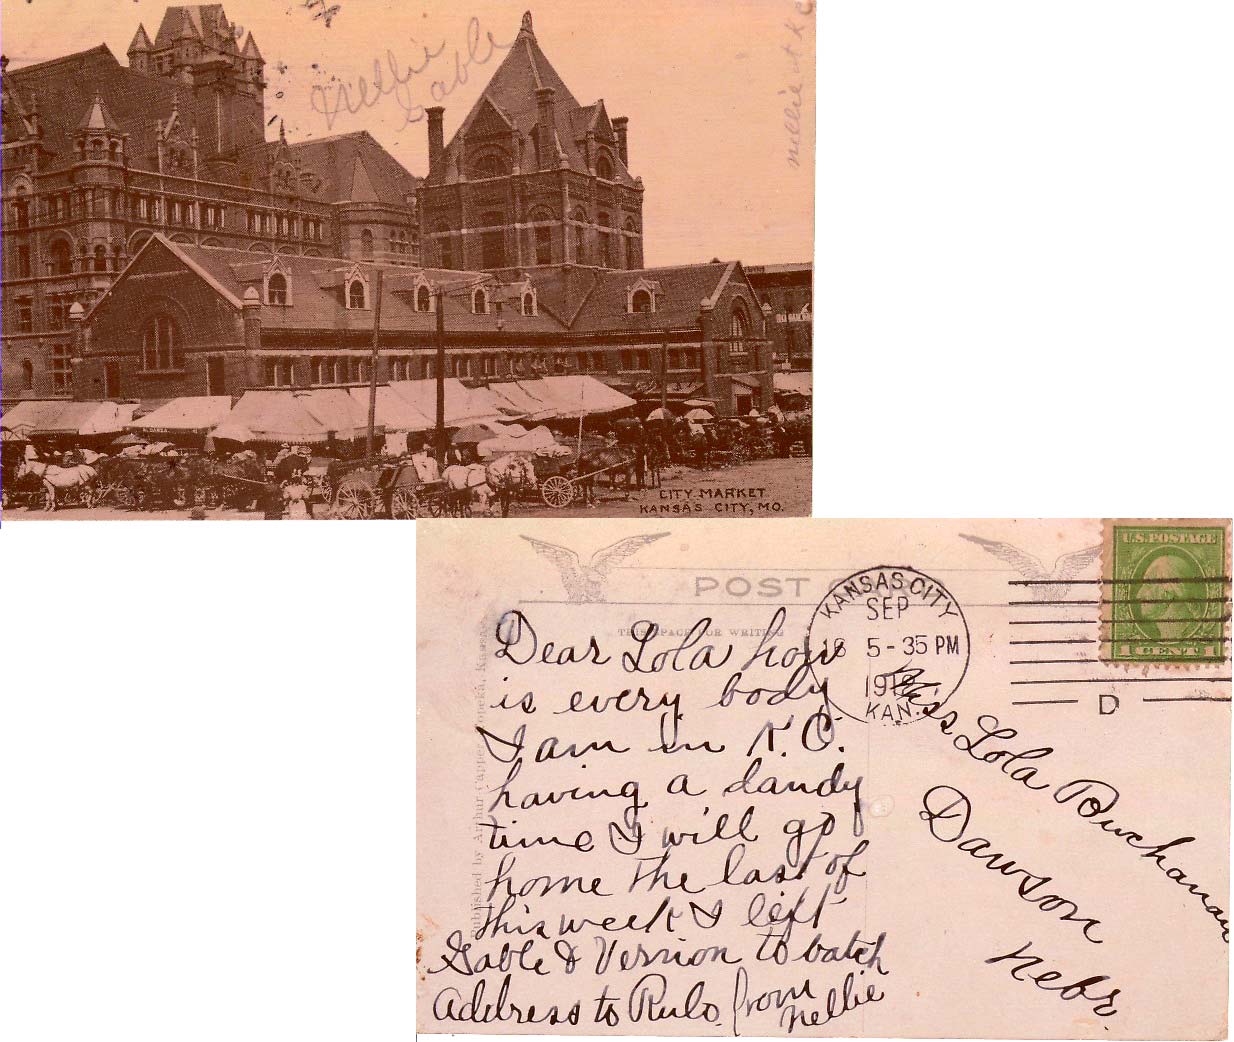 Nellie
Gable
Nellie at K C
CITY MARKET
KANSAS CITY, MO.
POST
THIS SPACE FOR WRITING
Published by Arthur Capper, Topeka, Kansas
KANSAS CITY
SEP
18 5-35 PM
KAN.
D
U.S. POSTAGE
1 CENT 1
Dear Lola how
is every body
I am in K.C.
having a dandy
time I will go
home the last of
this week I left
Gable & Vernion to batch
address to Rulo. from
Nellie
Miss Lola Buchanan
Dawson
Nebr.